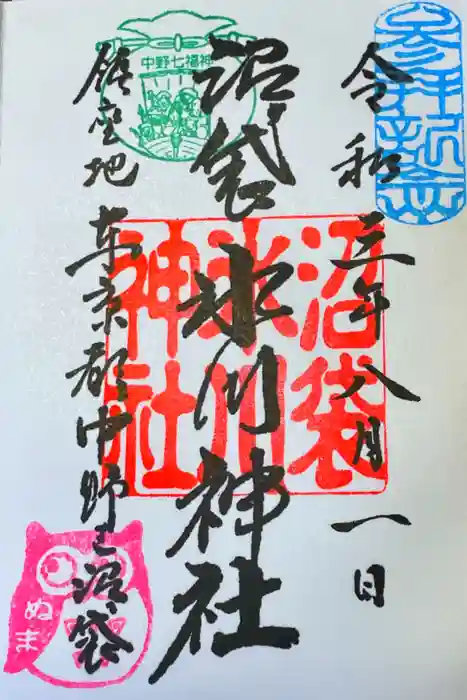 参拝記念
令和三年八月一日
沼袋氷川神社
沼袋
氷川
神社
中野七福神
鎮座地 東京都中野区沼袋
ぬま